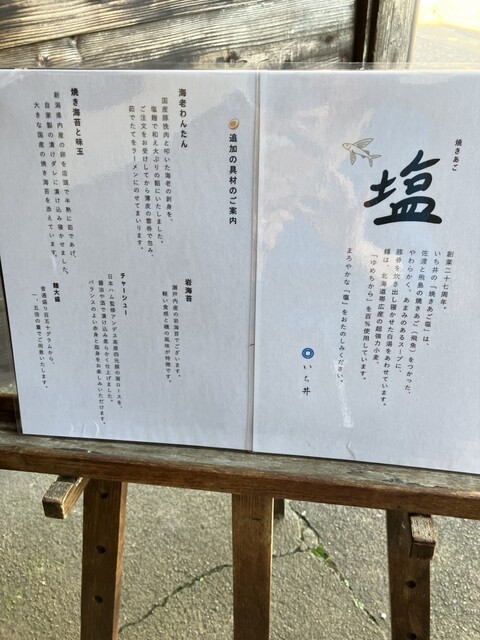 焼きあご
塩
創業二十七周年。
いち井の「焼きあご塩」は、
佐渡と飛島の焼きあご（飛魚）をつかった、
やわらかく、あまみのあるスープに、
豚骨を炊き出し寝かせた白湯をあわせています。
麺は、北海道帯広産の超強力小麦、
「ゆめちから」を百%使用しています。
まろやかな「塩」をおたのしみください。
いち井
追加の具材のご案内
海老わんたん
国産豚挽肉と叩いた海老の剥身を、
塩麹で和え大ぶりの餡にいたしました。
ご注文をお受けしてから薄皮の雲呑で包み、
茹でたてをラーメンにのせてまいります。
岩海苔
瀬戸内産の岩海苔でございます。
軽い食感と磯の風味が特徴です。
焼き海苔と味玉
新潟県内産の卵を店頭で半熟に茹であげ、
自家製の漬けダレに漬け込み寝かせました。
大きな国産の焼き海苔を添えています。
チャーシュー
日本ハム監修アンデス高原四元豚の肩ロースを、
醤油や酒で漬け込み柔らかく仕上げました。
バランスのよい赤身と脂身をお楽しみいただけます。
麺大盛
普通盛り百五十グラムから、
一、五倍の量でご用意いたします。